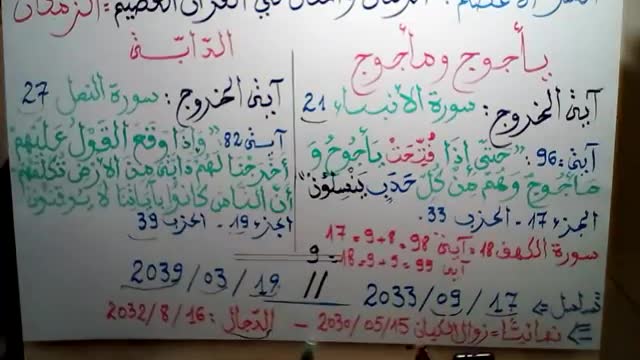 الزمان والمكان في القرآن العظيم = الزمكان
يأجوج ومأجوج
آية الخروج : سورة الأنبياء 21
آية 96: "حَتَّى إِذَا فُتِحَتْ يَأْجُوجُ وَ
مَأْجُوجُ وَهُمْ مِنْ كُلِّ حَدَبٍ يَنْسِلُونَ"
الجزء 17 - الحزب 33.
سورة الكهف 18 = آية 98 = 8+9 = 17
آية 99 = 9+9 = 18 = 9
الدّابّة
آية الخروج : سورة النمل 27
آية 82: "وَإِذَا وَقَعَ الْقَوْلُ عَلَيْهِمْ
أَخْرَجْنَا لَهُمْ دَابَّةً مِنَ الْأَرْضِ تُكَلِّمُهُمْ
أَنَّ النَّاسَ كَانُوا بِآيَاتِنَا لَا يُوقِنُونَ
الجزء 19 - الحزب 39
17 / 09 / 2033 // 19 / 03 / 2039
زوال الكيان 15/05/2030 - الدجال : 16/8/2032